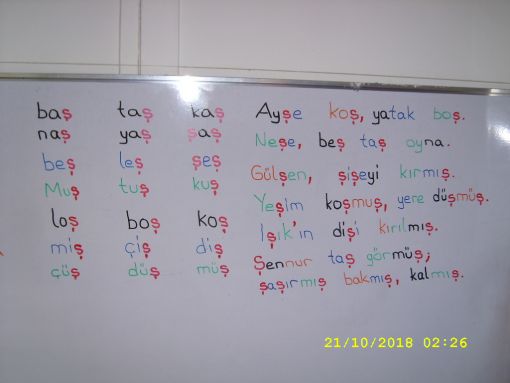 baş taş kaş
naş yaş şaş
beş leş şeş
Muş tuş kuş
loş boş koş
miş çiş diş
çüş düş müş
Ayşe koş, yatak boş.
Neşe, beş taş oyna.
Gülşen, şişeyi kırmış.
Yeşim koşmuş, yere düşmüş.
Işık'ın dişi kırılmış.
Şennur taş görmüş;
şaşırmış bakmış, kalmış.
21/10/2018 02:26